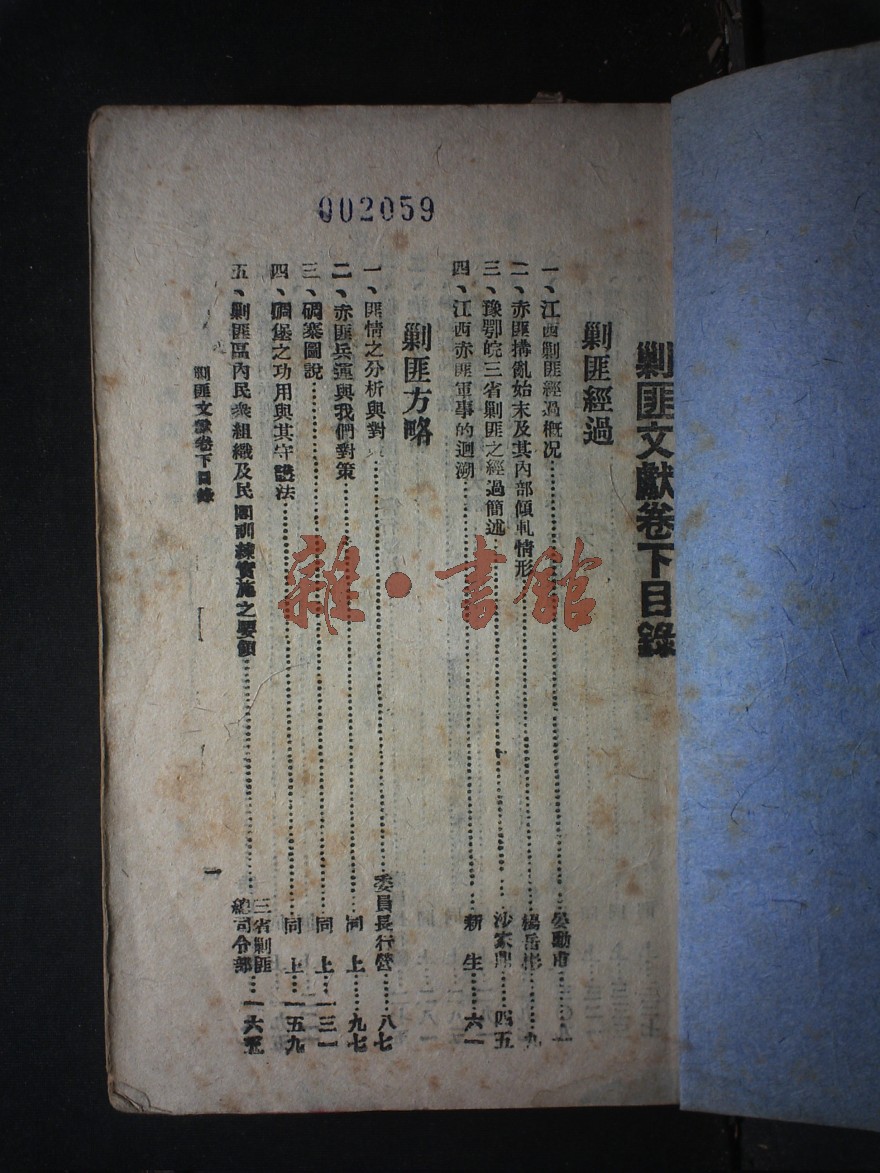 002059
剿匪文獻卷下目錄
剿匪經過
一、江西剿匪經過概况……………一
二、赤匪搆亂始末及其內部傾軋情形……………楊岳彬……九
三、豫鄂皖三省剿匪之經過簡述……………沙家鼎……四五
四、江西赤匪軍事的迴溯……………新生……六一
剿匪方略
一、匪情之分析與對……………委員長行營……八七
二、赤匪兵運與我們對策……………同上……九七
三、碉寨圖說……………同上……一三一
四、碉堡之功用與其守護法……………同上……一五九
五、剿匪區內民衆組織及民團訓練實施之要領……………三省剿匪總司令部……一六五
剿匪文獻卷下目錄
一
雜·書館